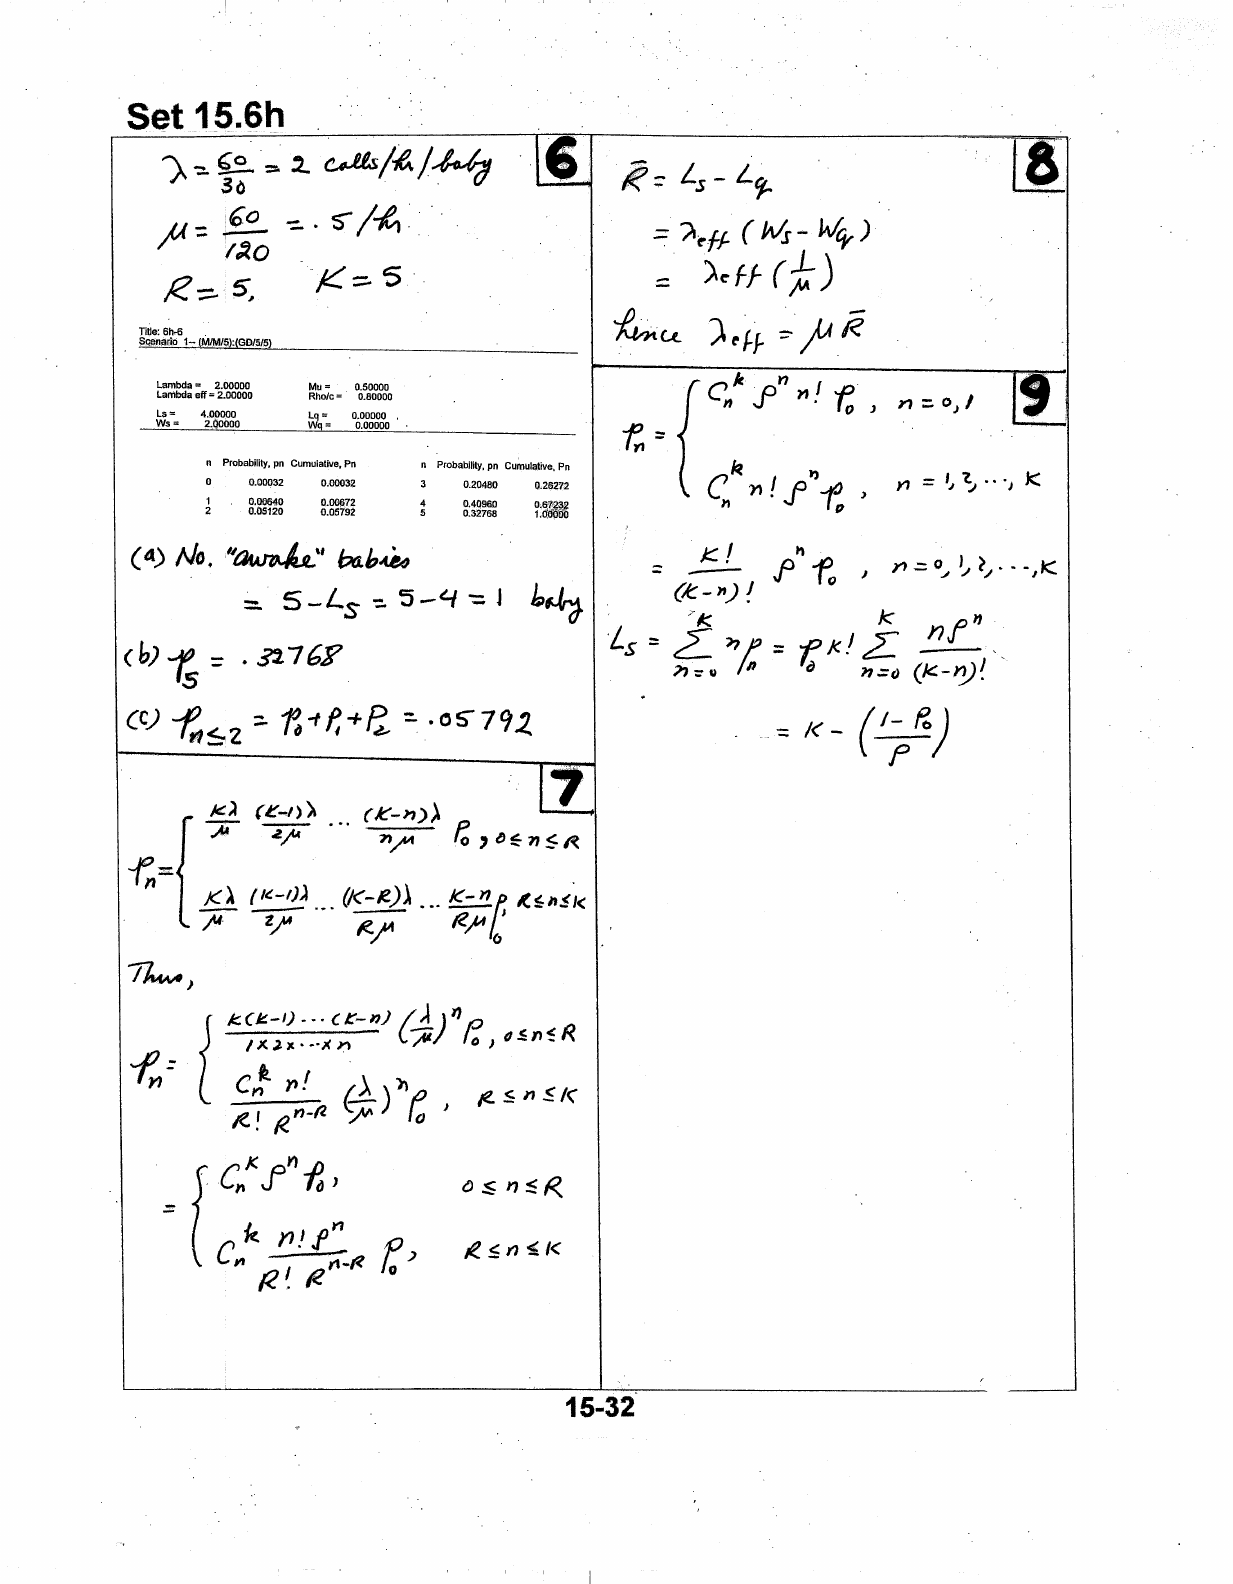 Set 15.6h
6
λ = 60/30 = 2 calls/hr/baby
μ = 60/120 = .5/hr
R = 5, K = 5
Title: 6h-6
Scenario 1-- (M/M/5):(GD/5/5)
Lambda = 2.00000 Mu = 0.50000
Lambda eff = 2.00000 Rho/c = 0.80000
Ls = 4.00000 Lq = 0.00000
Ws = 2.00000 Wq = 0.00000
n Probability, pn Cumulative, Pn n Probability, pn Cumulative, Pn
0 0.00032 0.00032 3 0.20480 0.26272
1 0.00640 0.00672 4 0.40960 0.67232
2 0.05120 0.05792 5 0.32768 1.00000
(a) No. "awake" babies
= 5 - Ls = 5 - 4 = 1 baby
(b) p5 = .32768
(c) Pn≤2 = p0 + p1 + p2 = .05792
7
pn = { Kλ/μ (K-1)λ/2μ ... (K-n)λ/nμ p0, 0≤n≤R
Kλ/μ (K-1)λ/2μ ... (K-R)λ/Rμ ... K-n/Rμ p0, R≤n≤K
Thus,
pn = { K(K-1)...(K-n)/1x2x...xn (λ/μ)^n p0, 0≤n≤R
C_n^k n!/R! R^(n-R) (λ/μ)^n p0, R≤n≤K
= { C_n^K ρ^n p0, 0≤n≤R
C_n^k n! ρ^n/R! R^(n-R) p0, R≤n≤K
8
R̄ = Ls - Lq
= λeff (Ws - Wq)
= λeff (1/μ)
hence λeff = μ R̄
9
pn = { C_n^k ρ^n n! p0, n = 0,1
C_n^k n! ρ^n p0, n = 1,2,..., K
= K!/(K-n)! ρ^n p0, n = 0,1,2,...,K
Ls = Σ_{n=0}^{K} n pn = p0 K! Σ_{n=0}^{K} nρ^n/(K-n)!
= K - (1-p0/ρ)
15-32